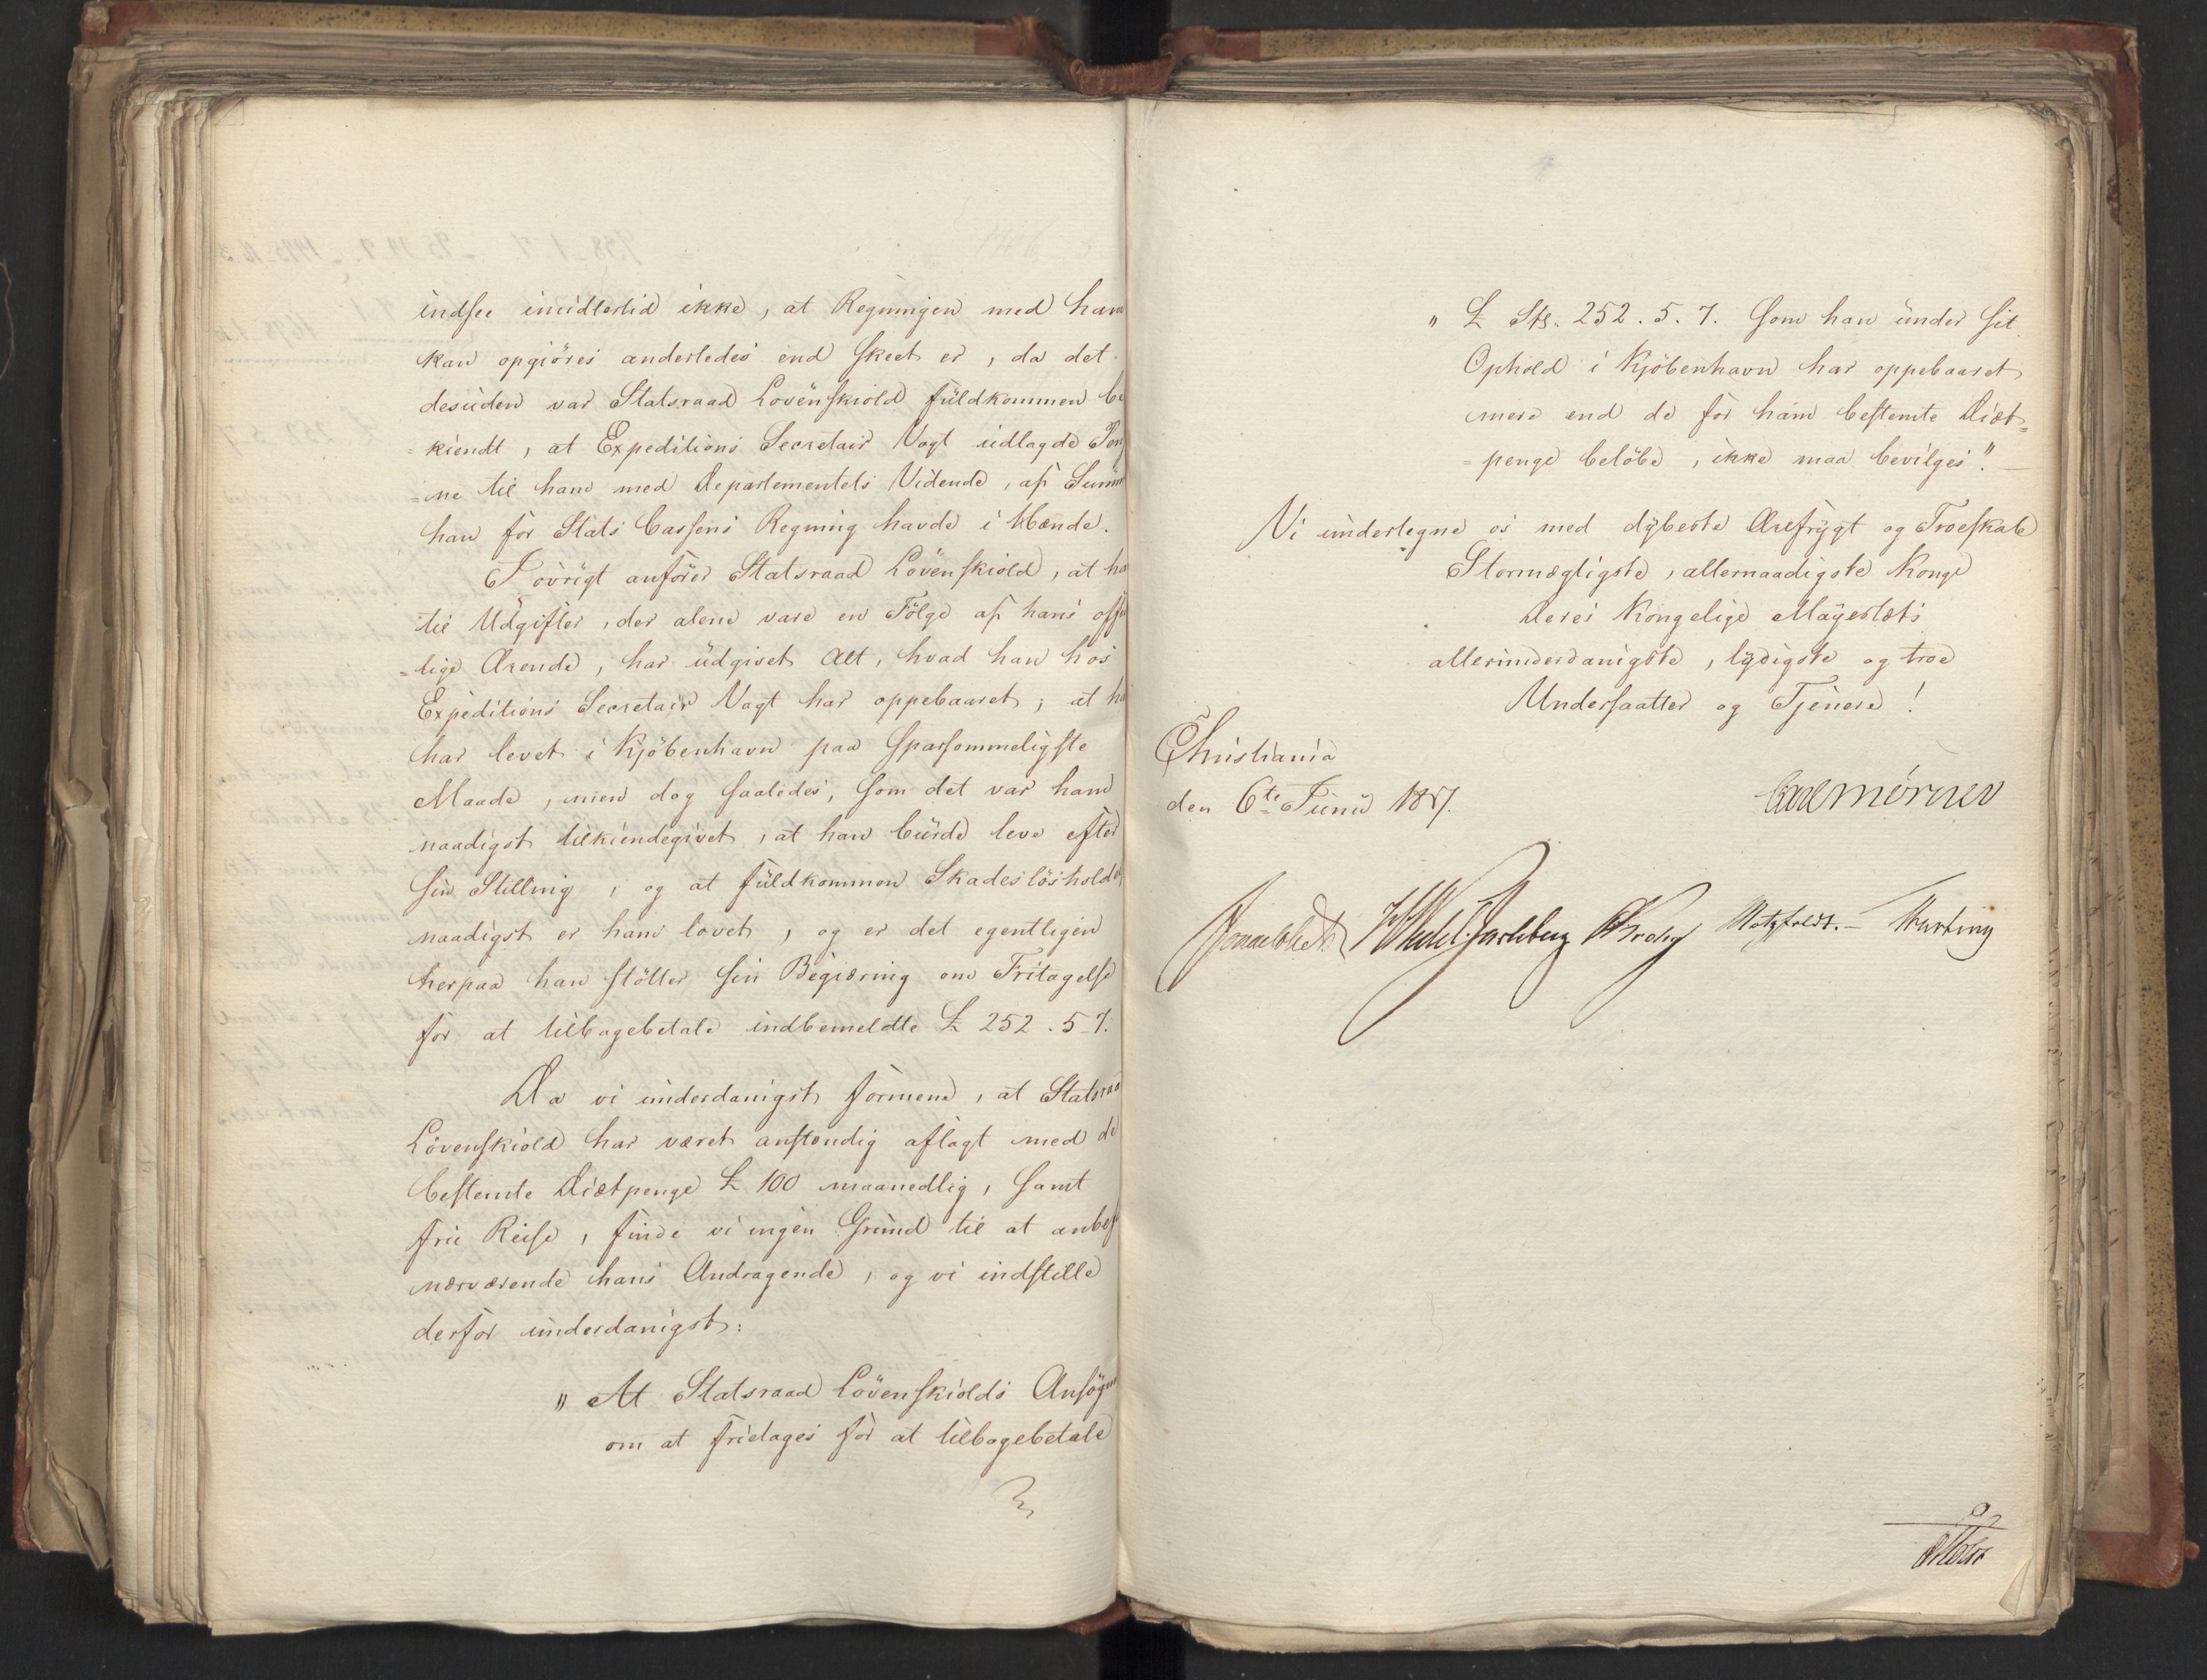 indsee imidlertid ikke, at Regningen med ham
kan opgiöres anderledes end skeet er, da det
desuden var Statsraad Lövenskiold fuldkommen be
=kiendt, at Expeditions Secretair Vogt udlagde Pen
=ne til ham med Departementets Vidende, af Summ
han for Stats Cassens Regning havde i Hænde.
I övrigt anförer Statsraad Lövenskiold, at ha
til Udgifter, der alene vare en Fölge af hans offe
=lige Ærende, har udgivet Alt, hvad han hos
Expeditions Secretair Vogt har oppebaaret; at ha
har levet i Kjöbenhavn paa sparsommeligste
Maade, men dog saaledes, som det var ham
naadigst tilkiendegivet, at han burde leve efter
sin Stilling, og at fuldkommen Skadeslösholde
naadigst er ham lovet, og er det egentligen
herpaa han stötter sin Begiæring om Fritagelse
for at tilbagebetale indbemeldte £ 252. 5-7.
Da vi underdanigst formene, at Statsraa
Lövenskiold har været anstændig aflagt med de
bestemte Diætpenge £ 100 maanedlig, samt
frie Reise, finde vi ingen Grund til at anbef
nærværende hans Andragende, og vi indstille
derfor underdanigst:
" At Statsraad Lövenskiolds Ansögn
om at fritages for at tilbagebetale
" £ St. 252. 5. 7. som han under sit
Ophold i Kjöbenhavn har oppebaaret
mere end de for ham bestemte Diæt=
=penge belöbe, ikke maa bevilges". —
Vi undertegne os med dybeste Ærefrygt og Troeskab
Stormægtigste, allernaadigste Konge
Deres Kongelige Mayestæts
allerunderdanigste, lydigste og troe
Undersaatter og Tjenere!
Christiania
den 6te Junii 1817.
Carl Mörner
Sommerhielm HWedel Jarlsberg CKrohg Motzfeldt. — Hartung